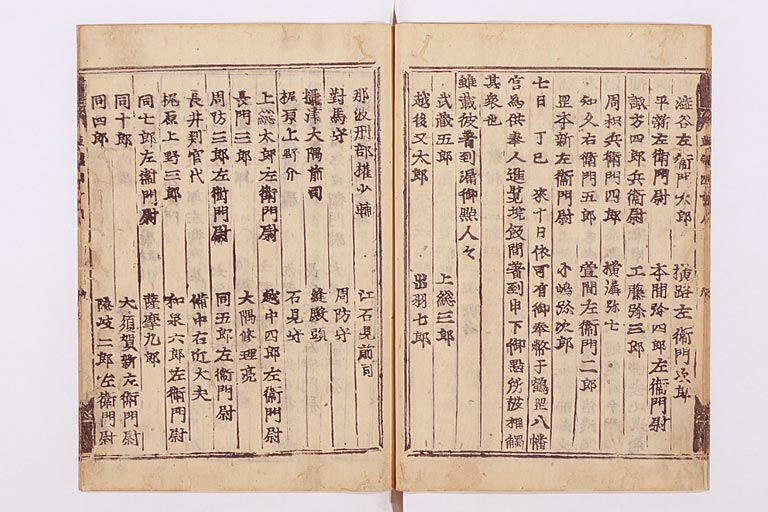 澁谷左衛門太郎　横路左衛門次郎
平新左衛門尉　本間弥四郎左衛門尉
諏方四郎兵衛尉　工藤弥三郎
周枳兵衛門四郎　横溝弥七
知久右衛門五郎　萱間左衛門二郎
罡本新左衛門尉　小嶋弥次郎
七日　丁巳　來十日依可有御奉幣于鶴罡八幡
宮為供奉人進覧境飯間著到申下御點仍被相觸
其衆也
雖載彼著到漏御點人々
武蔵五郎　上総三郎
越後又太郎　出羽七郎
那波刑部権少輔　江石見前司
對馬守　周防守
攝津大隅前司　縫殿頭
梶原上野介　石見守
上総太郎左衛門尉　越中四郎左衛門尉
長門三郎　大隅修理亮
周防三郎左衛門尉　同五郎左衛門尉
長井判官代　備中右近大夫
梶原上野三郎　和泉六郎左衛門尉
同七郎左衛門尉　薩摩九郎
同十郎　大須賀新左衛門尉
同四郎　隠岐二郎左衛門尉